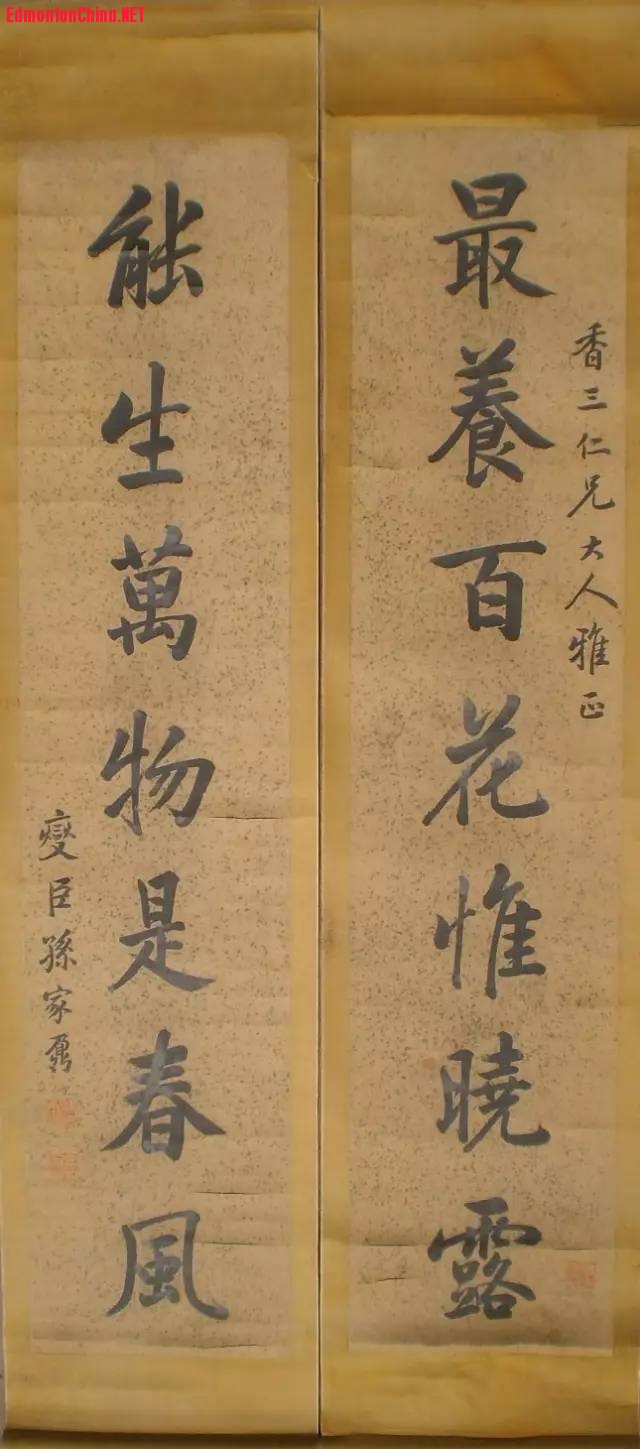 EdmontonChina.NET
最養百花惟曉露
香三仁兄大人雅正
能生萬物是春風
燮臣孫家鼐